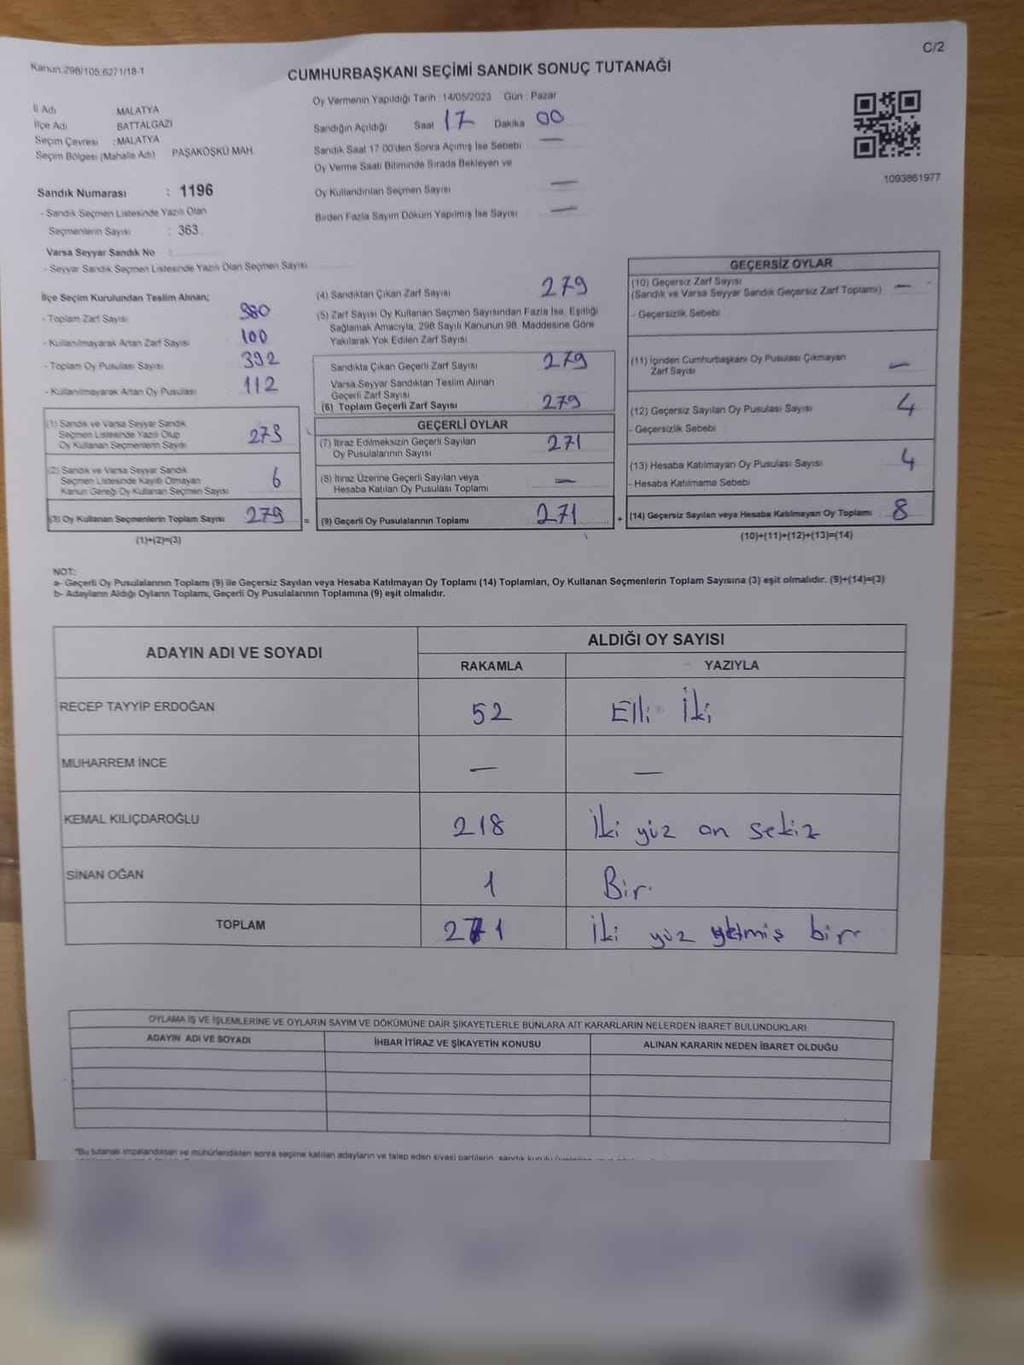 C/2
Kanun:298/105,6271/18-1
CUMHURBAŞKANI SEÇİMİ SANDIK SONUÇ TUTANAĞI
İl Adı MALATYA
İlçe Adı BATTALGAZİ
Seçim Çevresi :MALATYA
Seçim Bölgesi (Mahalle Adı) PAŞAKÖŞKÜ MAH.
Oy Vermenin Yapıldığı Tarih :14/05/2023 Gün : Pazar
Sandığın Açıldığı Saat 17 Dakika 00
Sandık Saat 17:00'den Sonra Açımış İse Sebebi —
Oy Verme Saati Bitiminde Sırada Bekleyen ve
Oy Kullandırılan Seçmen Sayısı —
Birden Fazla Sayım Döküm Yapılmış İse Sayısı —
1093861977
Sandık Numarası : 1196
- Sandık Seçmen Listesinde Yazılı Olan
Seçmenlerin Sayısı : 363
Varsa Seyyar Sandık No :
- Seyyar Sandık Seçmen Listesinde Yazılı Olan Seçmen Sayısı
İlçe Seçim Kurulundan Teslim Alınan;
- Toplam Zarf Sayısı 380
- Kullanılmayarak Artan Zarf Sayısı 100
- Toplam Oy Pusulası Sayısı 392
- Kullanılmayarak Artan Oy Pusulası 112
(1) Sandık ve Varsa Seyyar Sandık
Seçmen Listesinde Yazılı Olup
Oy Kullanan Seçmenlerin Sayısı 273
(2) Sandık ve Varsa Seyyar Sandık
Seçmen Listesinde Kayıtlı Olmayan
Kanun Gereği Oy Kullanan Seçmen Sayısı 6
(3) Oy Kullanan Seçmenlerin Toplam Sayısı 279
(1)+(2)=(3)
(4) Sandıktan Çıkan Zarf Sayısı 279
(5) Zarf Sayısı Oy Kullanan Seçmen Sayısından Fazla İse, Eşitliği
Sağlamak Amacıyla, 298 Sayılı Kanunun 98. Maddesine Göre
Yakılarak Yok Edilen Zarf Sayısı
Sandıkta Çıkan Geçerli Zarf Sayısı 279
Varsa Seyyar Sandıktan Teslim Alınan
Geçerli Zarf Sayısı
(6) Toplam Geçerli Zarf Sayısı 279
GEÇERLİ OYLAR
(7) İtiraz Edilmeksizin Geçerli Sayılan
Oy Pusulalarının Sayısı 271
(8) İtiraz Üzerine Geçerli Sayılan veya
Hesaba Katılan Oy Pusulası Toplamı —
= (9) Geçerli Oy Pusulalarının Toplamı 271
GEÇERSİZ OYLAR
(10) Geçersiz Zarf Sayısı
(Sandık ve Varsa Seyyar Sandık Geçersiz Zarf Toplamı) —
- Geçersizlik Sebebi
(11) İçinden Cumhurbaşkanı Oy Pusulası Çıkmayan
Zarf Sayısı —
(12) Geçersiz Sayılan Oy Pusulası Sayısı 4
- Geçersizlik Sebebi
(13) Hesaba Katılmayan Oy Pusulası Sayısı 4
- Hesaba Katılmama Sebebi
+ (14) Geçersiz Sayılan veya Hesaba Katılmayan Oy Toplamı 8
(10)+(11)+(12)+(13)=(14)
NOT:
a- Geçerli Oy Pusulalarının Toplamı (9) ile Geçersiz Sayılan veya Hesaba Katılmayan Oy Toplamı (14) Toplamları, Oy Kullanan Seçmenlerin Toplam Sayısına (3) eşit olmalıdır. (9)+(14)=(3)
b- Adayların Aldığı Oyların Toplamı, Geçerli Oy Pusulalarının Toplamına (9) eşit olmalıdır.
ADAYIN ADI VE SOYADI ALDIĞI OY SAYISI
RAKAMLA YAZIYLA
RECEP TAYYİP ERDOĞAN 52 Elli İki
MUHARREM İNCE — —
KEMAL KILIÇDAROĞLU 218 İki yüz on sekiz
SİNAN OĞAN 1 Bir
TOPLAM 271 İki yüz yetmiş bir
OYLAMA İŞ VE İŞLEMLERİNE VE OYLARIN SAYIM VE DÖKÜMÜNE DAİR ŞİKAYETLERLE BUNLARA AİT KARARLARIN NELERDEN İBARET BULUNDUKLARI
ADAYIN ADI VE SOYADI İHBAR İTİRAZ VE ŞİKAYETİN KONUSU ALINAN KARARIN NEDEN İBARET OLDUĞU
*Bu tutanak imzalandıktan ve mühürlendikten sonra seçime katılan adayların ve talep eden siyasi partilerin, sandık kurulu